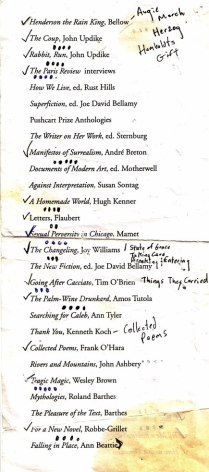 Henderson the Rain King, Bellow
Augie
March
Herzog
Humboldt's
Gift
The Coup, John Updike
Rabbit, Run, John Updike
The Paris Review interviews
How We Live, ed. Rust Hills
Superfiction, ed. Joe David Bellamy
Pushcart Prize Anthologies
The Writer on Her Work, ed. Sternburg
Manifestos of Surrealism, André Breton
Documents of Modern Art, ed. Motherwell
Against Interpretation, Susan Sontag
A Homemade World, Hugh Kenner
Letters, Flaubert
Sexual Perversity in Chicago, Mamet
The Changeling, Joy Williams
State of Grace
Taking Care
Breaking & Entering
The New Fiction, ed. Joe David Bellamy
Going After Cacciato, Tim O'Brien
Things They Carried
The Palm-Wine Drunkard, Amos Tutola
Searching for Caleb, Ann Tyler
Thank You, Kenneth Koch
Collected
Poems
Collected Poems, Frank O'Hara
Rivers and Mountains, John Ashbery
Tragic Magic, Wesley Brown
Mythologies, Roland Barthes
The Pleasure of the Text, Barthes
For a New Novel, Robbe-Grillet
Falling in Place, Ann Beattie